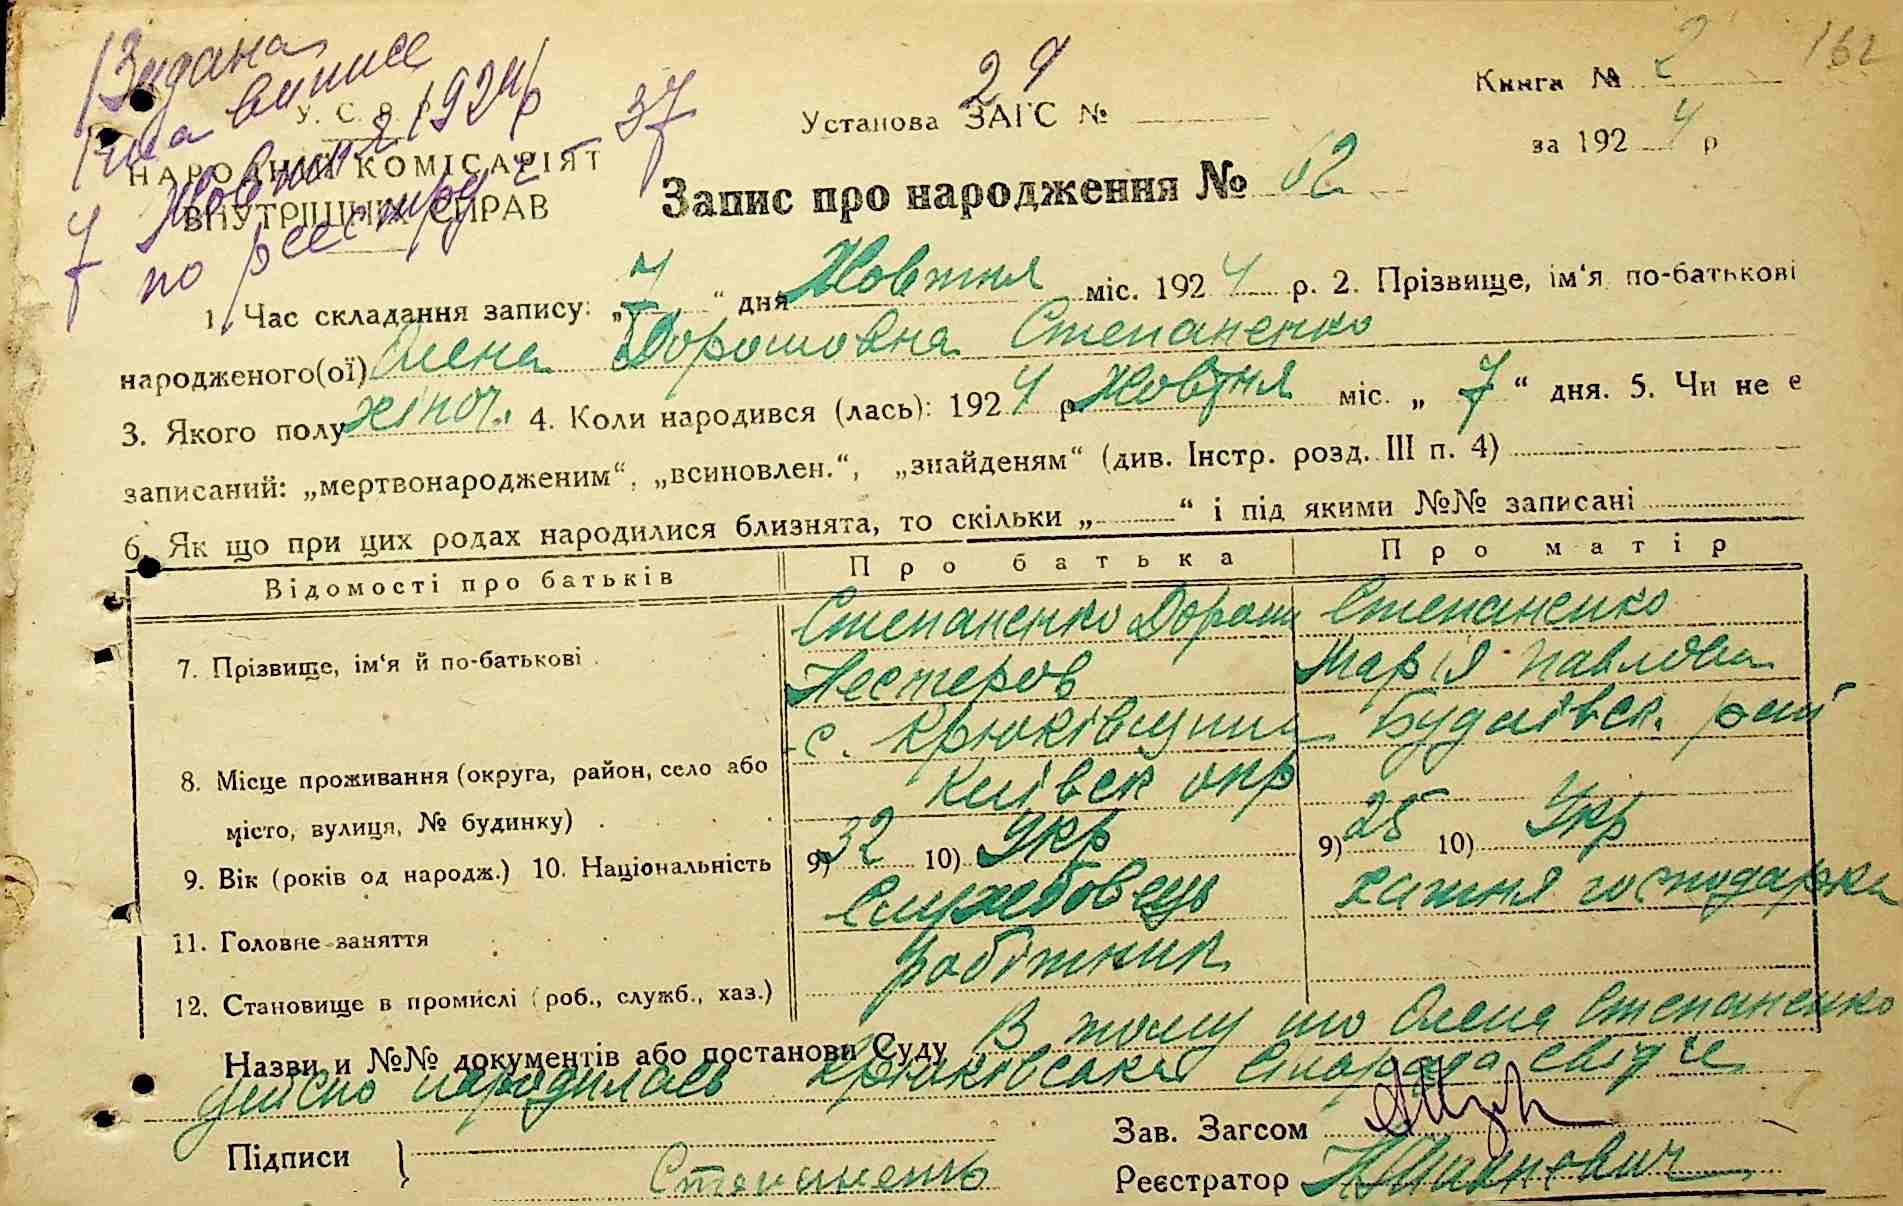 Видана
виписе
7 Жовтня 1924 р
по реєстру № 37
У. С. Р. Р.
НАРОДНИЙ КОМІСАРІЯТ
ВНУТРІШНИХ СПРАВ
Установа ЗАГС № 29
Книга № 2
162
за 1924 р
Запис про народження № 62
1. Час складання запису: „7“ дня Жовтня міс. 1924 р. 2. Прізвище, ім‘я по-батькові
народженого(ої) Олена Дорошовна Степаненко
3. Якого полу жіноч. 4. Коли народився (лась): 1924 р Жовтня міс. „7“ дня. 5. Чи не є
записаний: „мертвонародженим“, „всиновлен.“, „знайденям“ (див. Інстр. розд. III п. 4)
6. Як що при цих родах народилися близнята, то скільки „ “ і під якими №№ записані
Відомості про батьків Про батька Про матір
7. Прізвище, ім‘я й по-батькові
Степаненко Дорош
Нестеров
Степаненко
Марія Павловна
8. Місце проживання (округа, район, село або
місто, вулиця, № будинку)
с. Крюківщина Будаївск. рай
Київск окр
9. Вік (років од народж.) 10. Національність
9) 32 10) Укр
9) 25 10) Укр
11. Головне заняття
Службовець
хатня господарка
12. Становище в промислі (роб., служб., хаз.)
робітник
Назви и №№ документів або постанови Суду В тому що Олена Степаненко
дейсно народилась Крюківська Сільрада свідче
Підписи
Степаненко
Зав. Загсом
Реєстратор